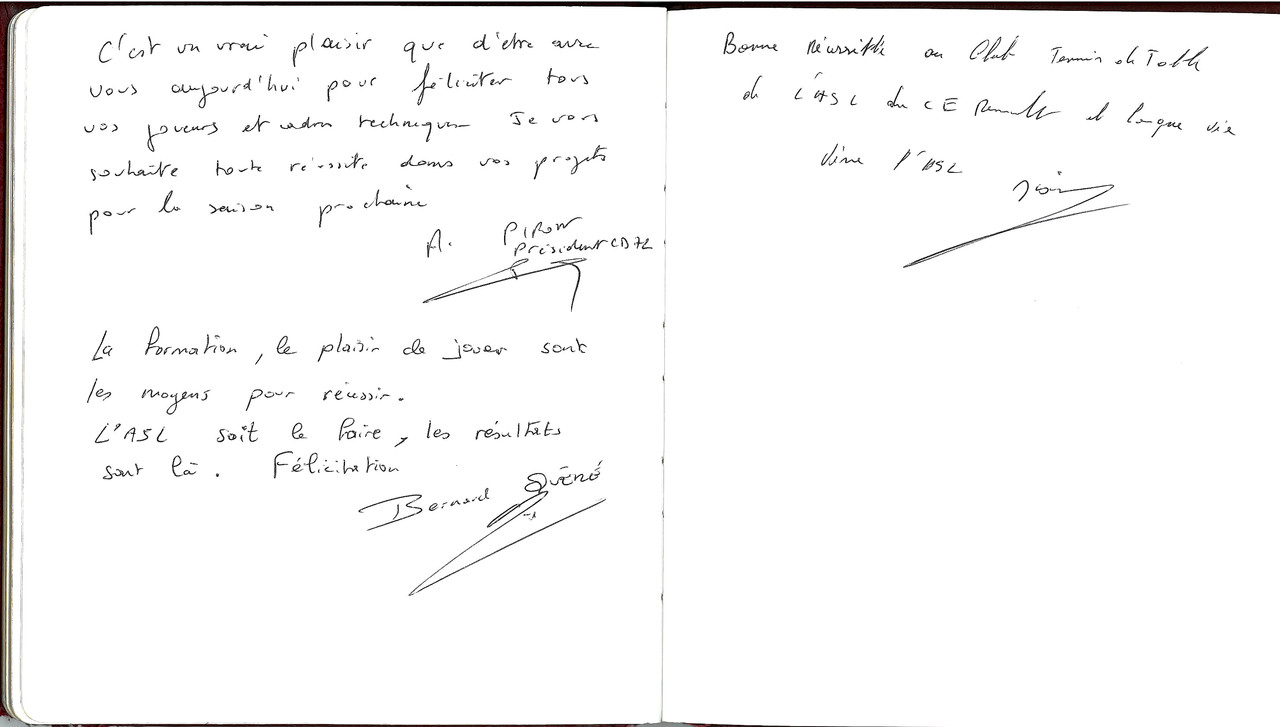 C'est un vrai plaisir que d'être avec
vous aujourd'hui pour féliciter tous
vos joueurs et cadres techniques Je vous
souhaite toute réussite dans vos projets
pour la saison prochaine
A. PIRON
Président CD72
La formation, le plaisir de jouer sont
les moyens pour réussir.
L'ASL sait le faire, les résultats
sont là. Félicitation
Bernard QUÉNÉ
Bonne Réussite au Club Tennis de Table
de L'ASL du CE Renault et longue vie
Vive l'ASL